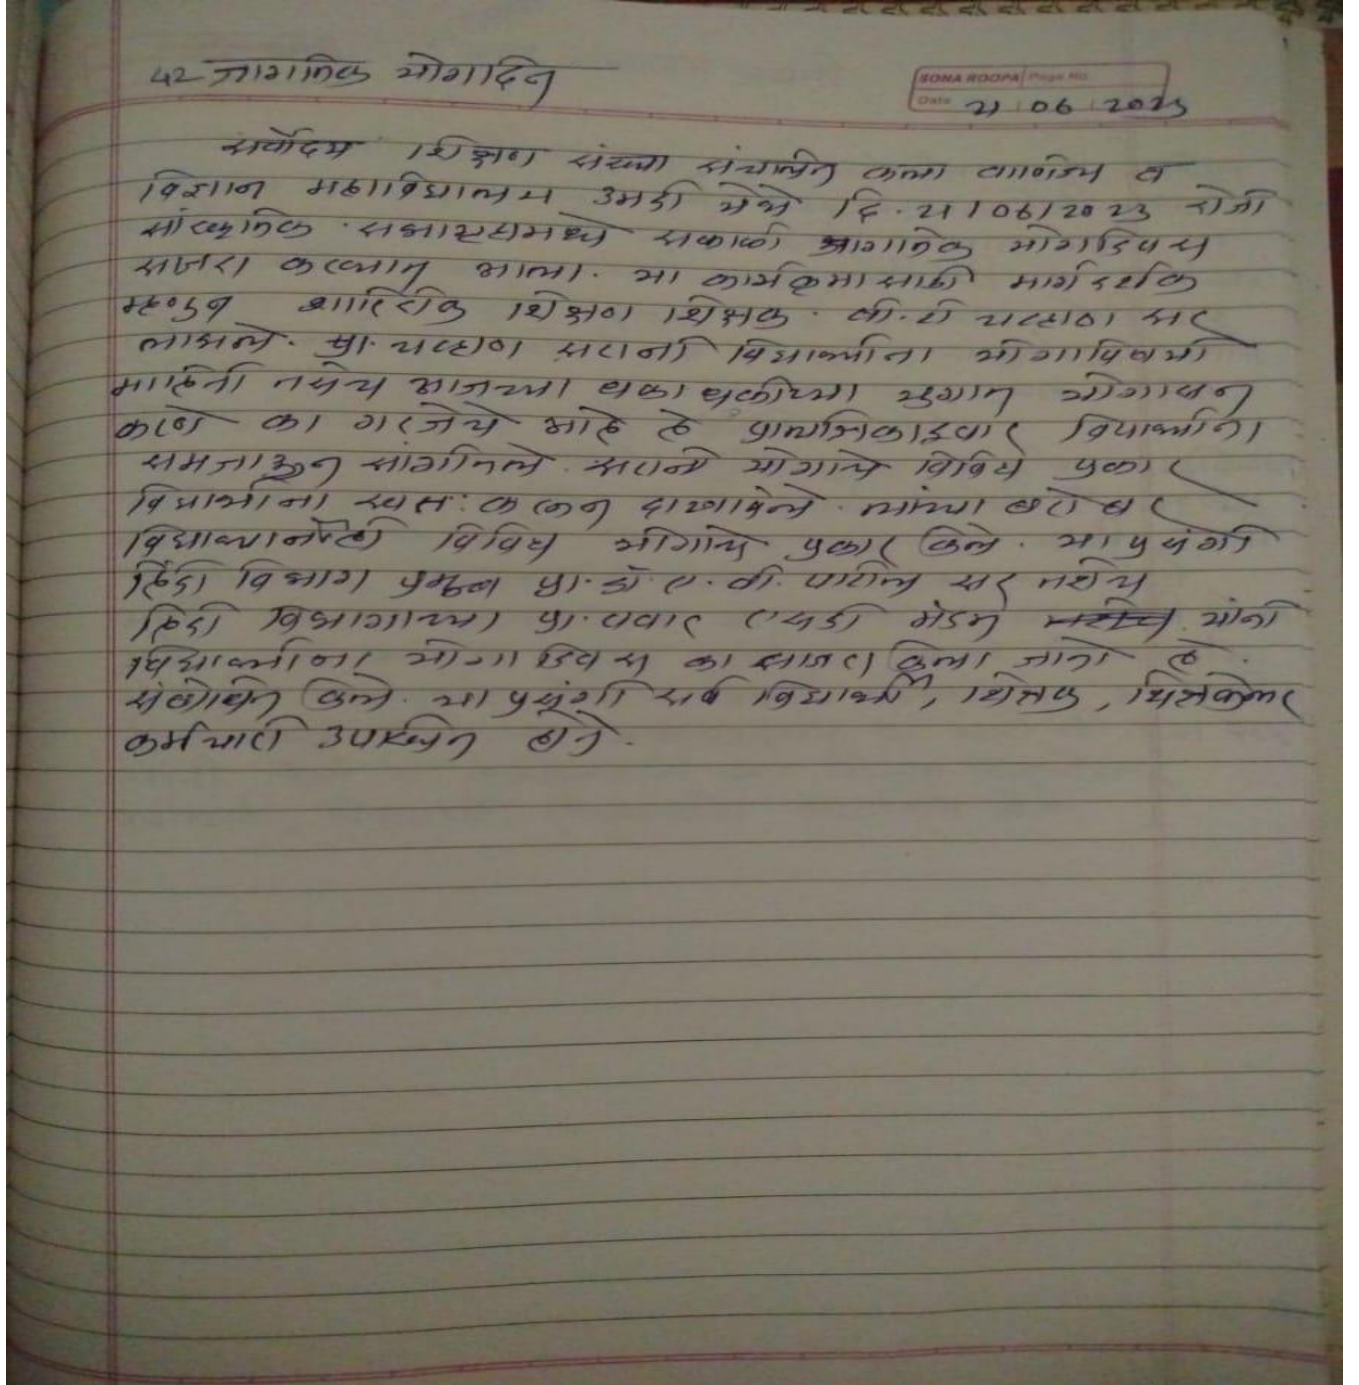 42 जागतिक योगादिन
SONA ROOPA Page No.
Date 21 06 2023
सर्वोदय शिक्षण संस्था संचालित कला वाणिज्य व
विज्ञान महाविद्यालय उमदी येथे दि. 21/06/2023 रोजी
सांस्कृतिक सभागृहामध्ये सकाळी जागतिक योगादिवस
साजरा करण्यात आला. या कार्यक्रमासाठी मार्गदर्शक
म्हणून शारिरिक शिक्षण शिक्षक चव्हाण सर
लाभले. प्रा. चव्हाण सरांनी विद्यार्थ्यांना योगाविषयी
माहिती तसेच आजच्या धकाधकीच्या युगात योगासन
करणे का गरजेचे आहे हे प्रात्यक्षिकाद्वारे विद्यार्थ्यांना
समजाऊन सांगितले. सरांनी योगाचे विविध प्रकार
विद्यार्थ्यांना स्वत: करून दाखविले. त्यांच्या बरोबर
विद्यार्थ्यांनीही विविध योगाचे प्रकार केले. या प्रसंगी
हिंदी विभाग प्रमुख प्रा. डॉ. ए. व्ही. पाटील सर तसेच
हिंदी विभागाच्या प्रा. पवार मॅडम यांनी
विद्यार्थ्यांना योगा दिवस का साजरा केला जातो हे
संबोधित केले. या प्रसंगी सर्व विद्यार्थी, शिक्षक, शिक्षकेतर
कर्मचारी उपस्थित होते.